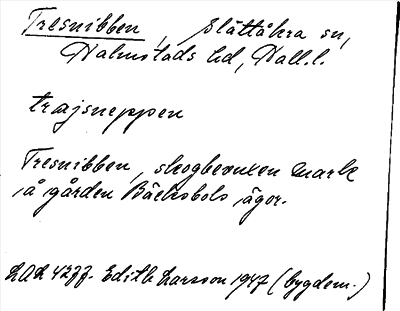 Tresnibben, Slättåkra sn,
Halmstads hd, Hall.l.
træjsneppen
Tresnibben, skogbevuxen mark
å gården Bäcksbols ägor.
Edith Larsson 1947 (bygdem.)